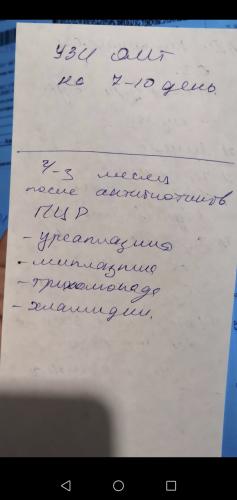 УЗИ ОМТ
на 7-10 день.
2/-3 месяц
после антибиотиков
ПЦР
- уреаплазмы
- микоплазмы
- трихомонада
- хламидии.